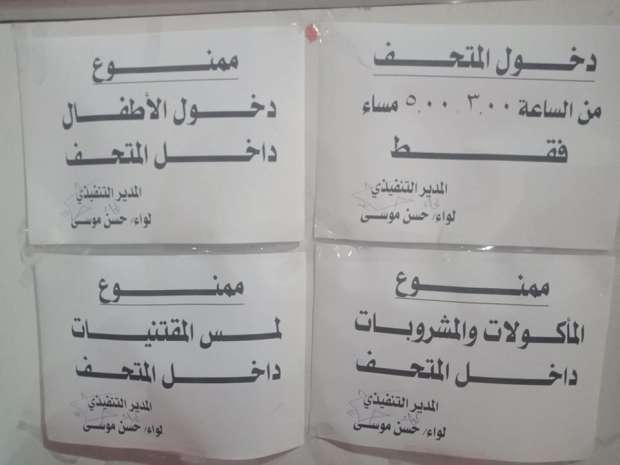 دخول المتحف
من الساعة ٣,٠٠ ٥,٠٠ مساء
فقط
المدير التنفيذي
لواء/ حسن موسى
ممنوع
دخول الأطفال
داخل المتحف
المدير التنفيذي
لواء/ حسن موسى
ممنوع
المأكولات والمشروبات
داخل المتحف
المدير التنفيذي
لواء/ حسن موسى
ممنوع
لمس المقتنيات
داخل المتحف
المدير التنفيذي
لواء/ حسن موسى